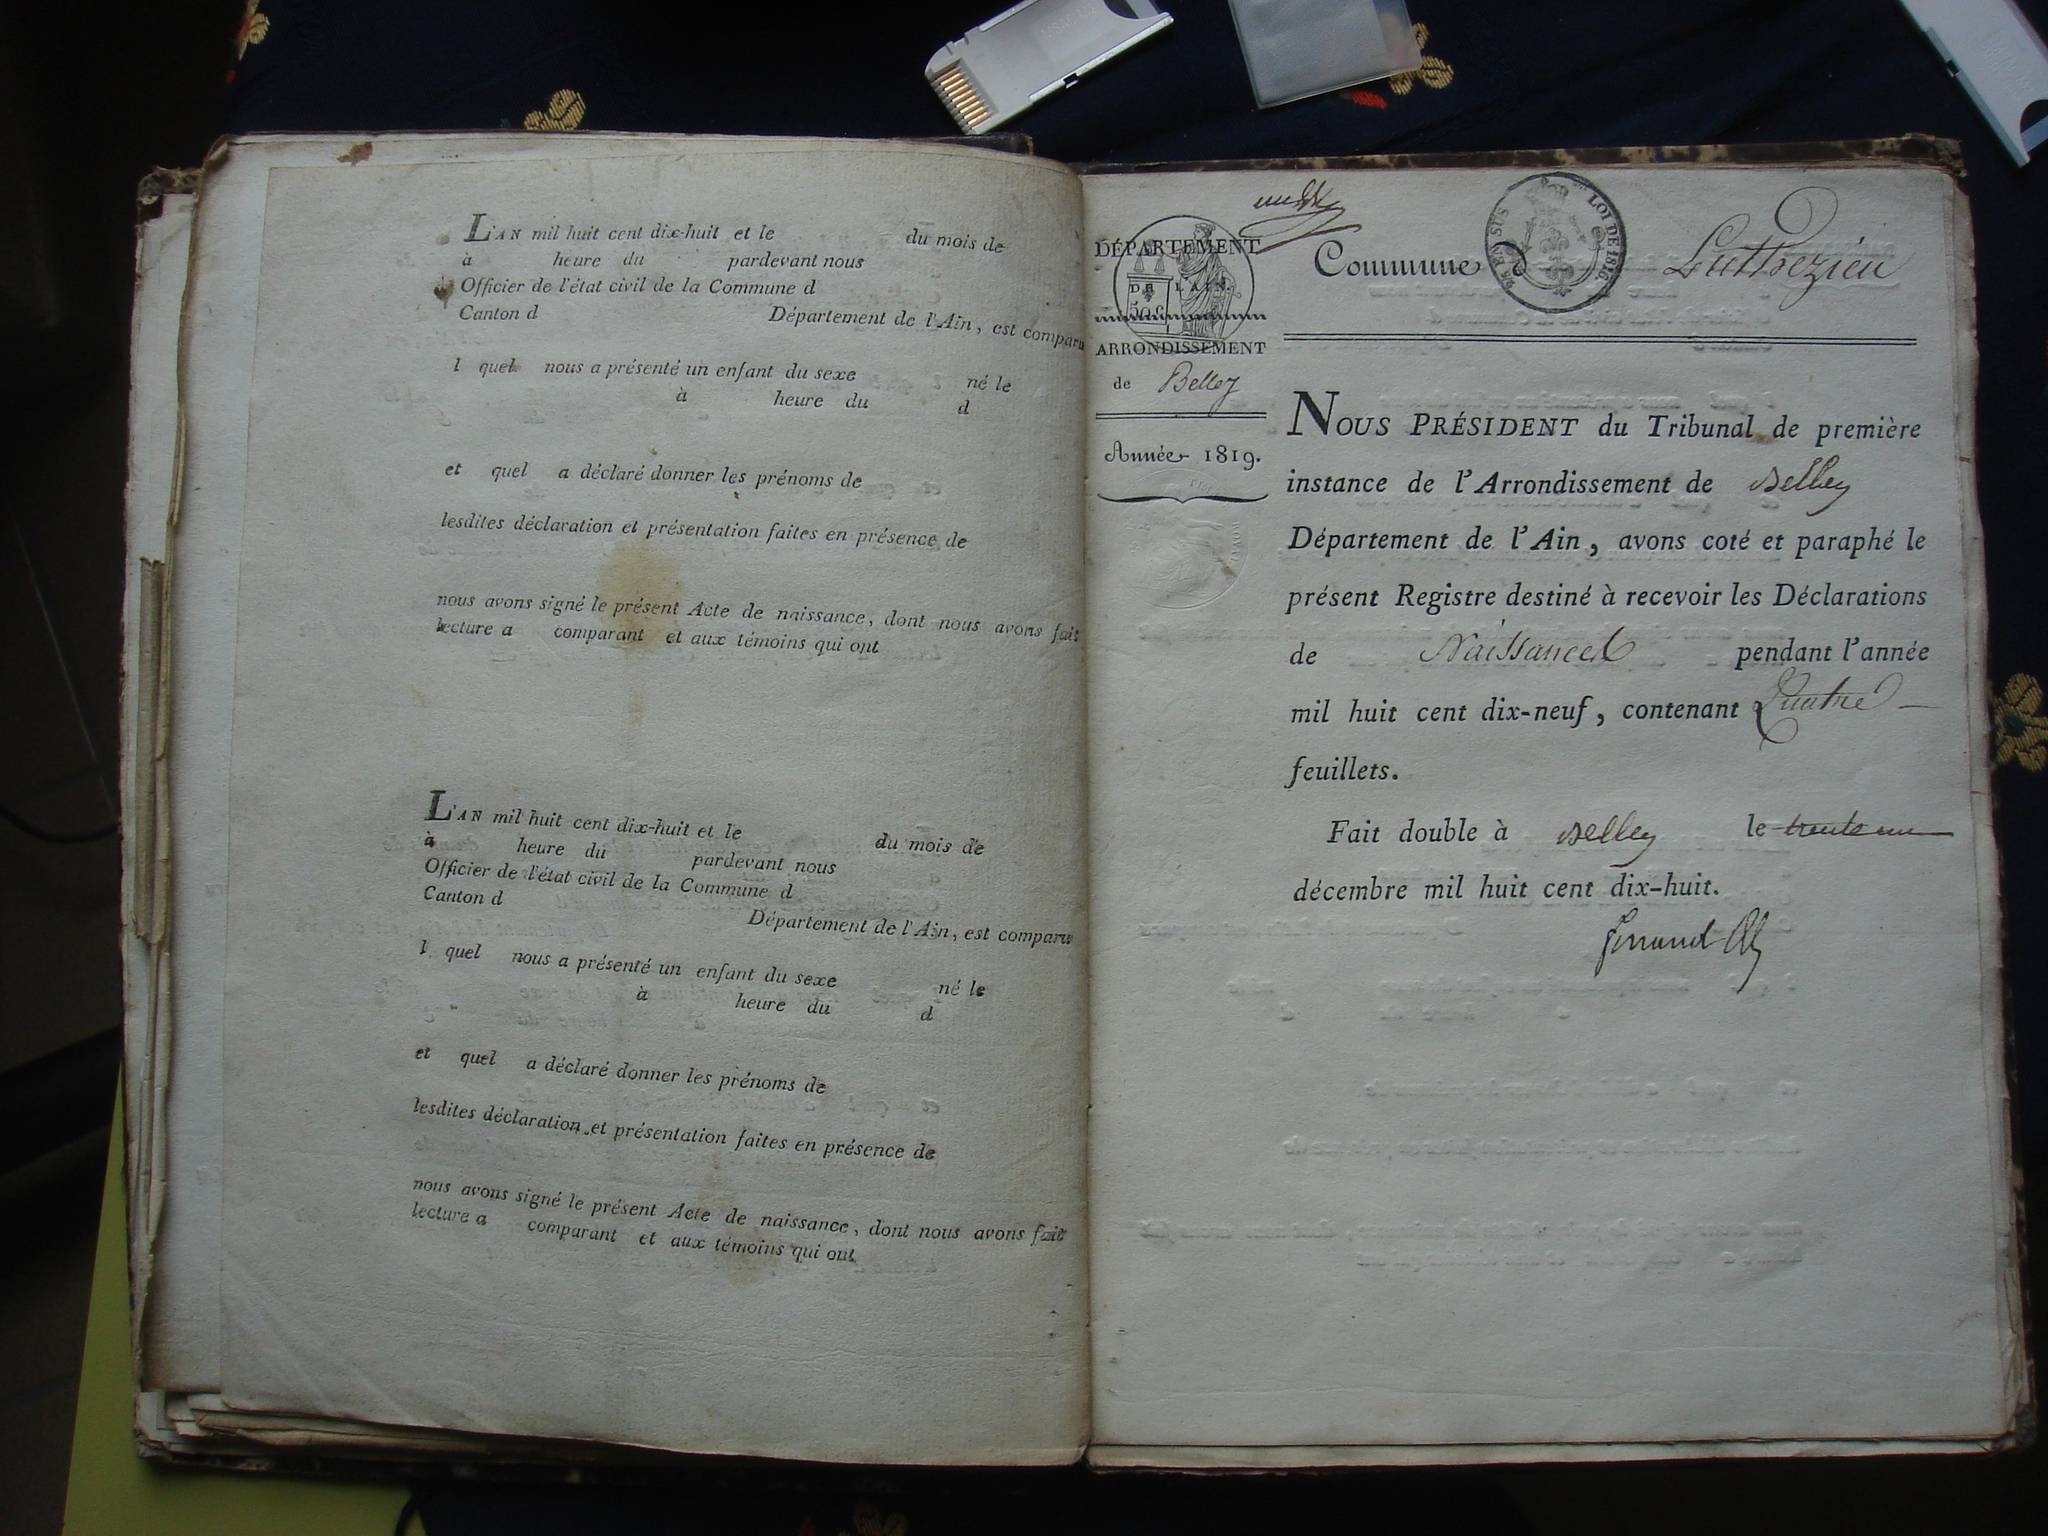 L'AN mil huit cent dix-huit et le du mois de
à heure du pardevant nous
Officier de l'état civil de la Commune d
Canton d Département de l'Ain, est comparu
l quel nous a présenté un enfant du sexe né le
à heure du d
et quel a déclaré donner les prénoms de
lesdites déclaration et présentation faites en présence de
nous avons signé le présent Acte de naissance, dont nous avons fait
lecture a comparant et aux témoins qui ont
L'AN mil huit cent dix-huit et le du mois de
à heure du pardevant nous
Officier de l'état civil de la Commune d
Canton d Département de l'Ain, est comparu
l quel nous a présenté un enfant du sexe né le
à heure du d
et quel a déclaré donner les prénoms de
lesdites déclaration et présentation faites en présence de
nous avons signé le présent Acte de naissance, dont nous avons fait
lecture a comparant et aux témoins qui ont
DÉPARTEMENT
DE L'AIN.
ARRONDISSEMENT
de Belley
Année 1819.
EN SUS LOI DE 1816
Commune d Luthezieu
NOUS PRÉSIDENT du Tribunal de première
instance de l'Arrondissement de Belley
Département de l'Ain, avons coté et paraphé le
présent Registre destiné à recevoir les Déclarations
de Naissances pendant l'année
mil huit cent dix-neuf, contenant Quatre
feuillets.
Fait double à Belley le trente un
décembre mil huit cent dix-huit.